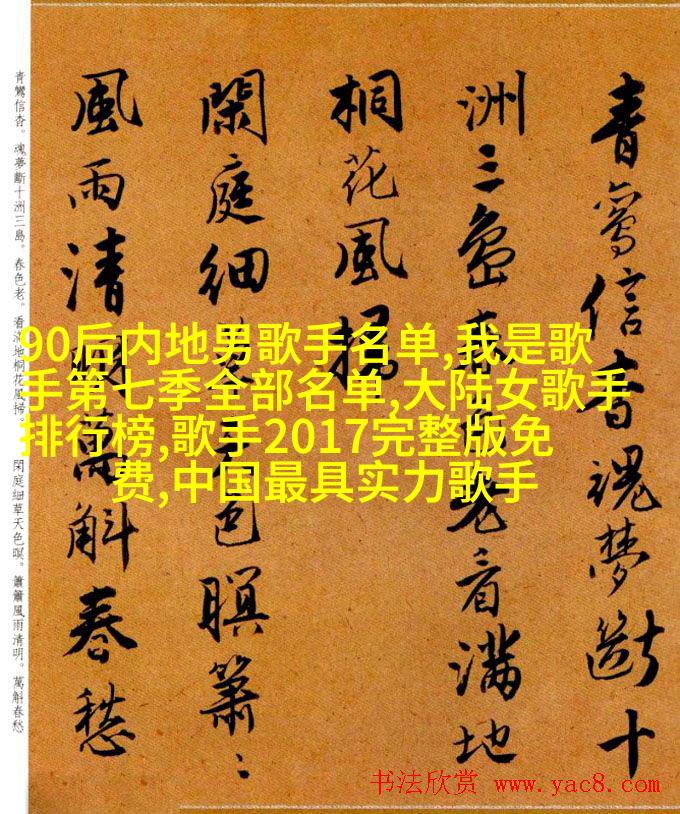 青鸞信杳魂夢斷十
洲三島春色老看滿地
桐花風掃
閑庭細草天色暝簫〻
風雨清明萬斛春愁
青鸞信杳。魂夢斷十洲三島。春色老。看滿地桐花風掃。
閑庭細草天色暝。簫簫風雨清明。萬斛春愁
90后内地男歌手名单,我是歌
手第七季全部名单,大陆女歌手
排行榜,歌手2017完整版免
费,中国最具实力歌手
书法欣赏 www.yac8.com